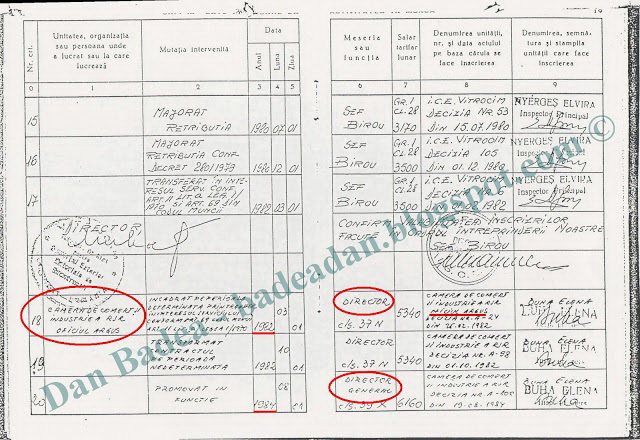 Nr. crt.
Unitatea, organizația
sau persoana unde
a lucrat sau la care
lucrează
Mutația intervenită
Data
Anul
Luna
Ziua
Meseria
sau
funcția
Salar
tarifar
lunar
Denumirea unității,
nr. și data actului
pe baza căruia se
face înscrierea
Denumirea, semnă-
tura și ștampila
unității care face
înscrierea
0 1 2 3 4 5 6 7 8 9
15
MAJORAT
RETRIBUTIA
1980 07 01
SEF
BIROU
GR.I
CL.28
3170
I.C.E. VITROCIM
DECIZIA NR. 53
DIN 15.07.1980
NYERGEȘ ELVIRA
Inspector Principal
16
MAJORAT
RETRIBUTIA CONF.
DECRET 280/1979
1980 12 01
SEF
BIROU
GR.I
CL.28
3500
I.C.E. VITROCIM
DECIZIA 105
DIN 01.12.1980
NYERGEȘ ELVIRA
Inspector Principal
17
TRANSFERAT IN INTE-
RESUL SERV. CONF.
CODUL MUNCII
1982 03 01
SEF
BIROU
GR.I
CL.28
3500
I.C.E. VITROCIM
DECIZIA
1982
NYERGEȘ ELVIRA
Inspector Principal
DIRECTOR
CONFIRM
INSCRIERILOR
FACUTE IN
INTREPRINDERII NOASTRE
SEF BIROU
18
CAMERA DE COMERT SI
INDUSTRIE A RSR
OFICIUL ARGUS
INCADRAT PE PERIOADA
DETERMINATA PRIN
1982 03 01
DIRECTOR
cls. 37 N
5340
CAMERA DE COMERT
SI INDUSTRIE A RSR
OFICIUL ARGUS
DECIZIA NR. A-24
DIN 26.02.1982
BUHA ELENA
19
TRANSFORMAT
CONTRACTUL
PE PERIOADA
NEDETERMINATA
1982 10 01
DIRECTOR
cls. 37 N
5340
CAMERA DE COMERT
SI INDUSTRIE A RSR
DECIZIA NR. A-98
DIN 01.10.1982
BUHA ELENA
20
PROMOVAT IN
FUNCTIE
1984 08 01
DIRECTOR
GENERAL
cls. 39 X
6160
CAMERA DE COMERT
SI INDUSTRIE A RSR
DECIZIA NR. A-100
DIN 19-08-1984
BUHA ELENA
Dan Badea badeadan.blogspot.com ©